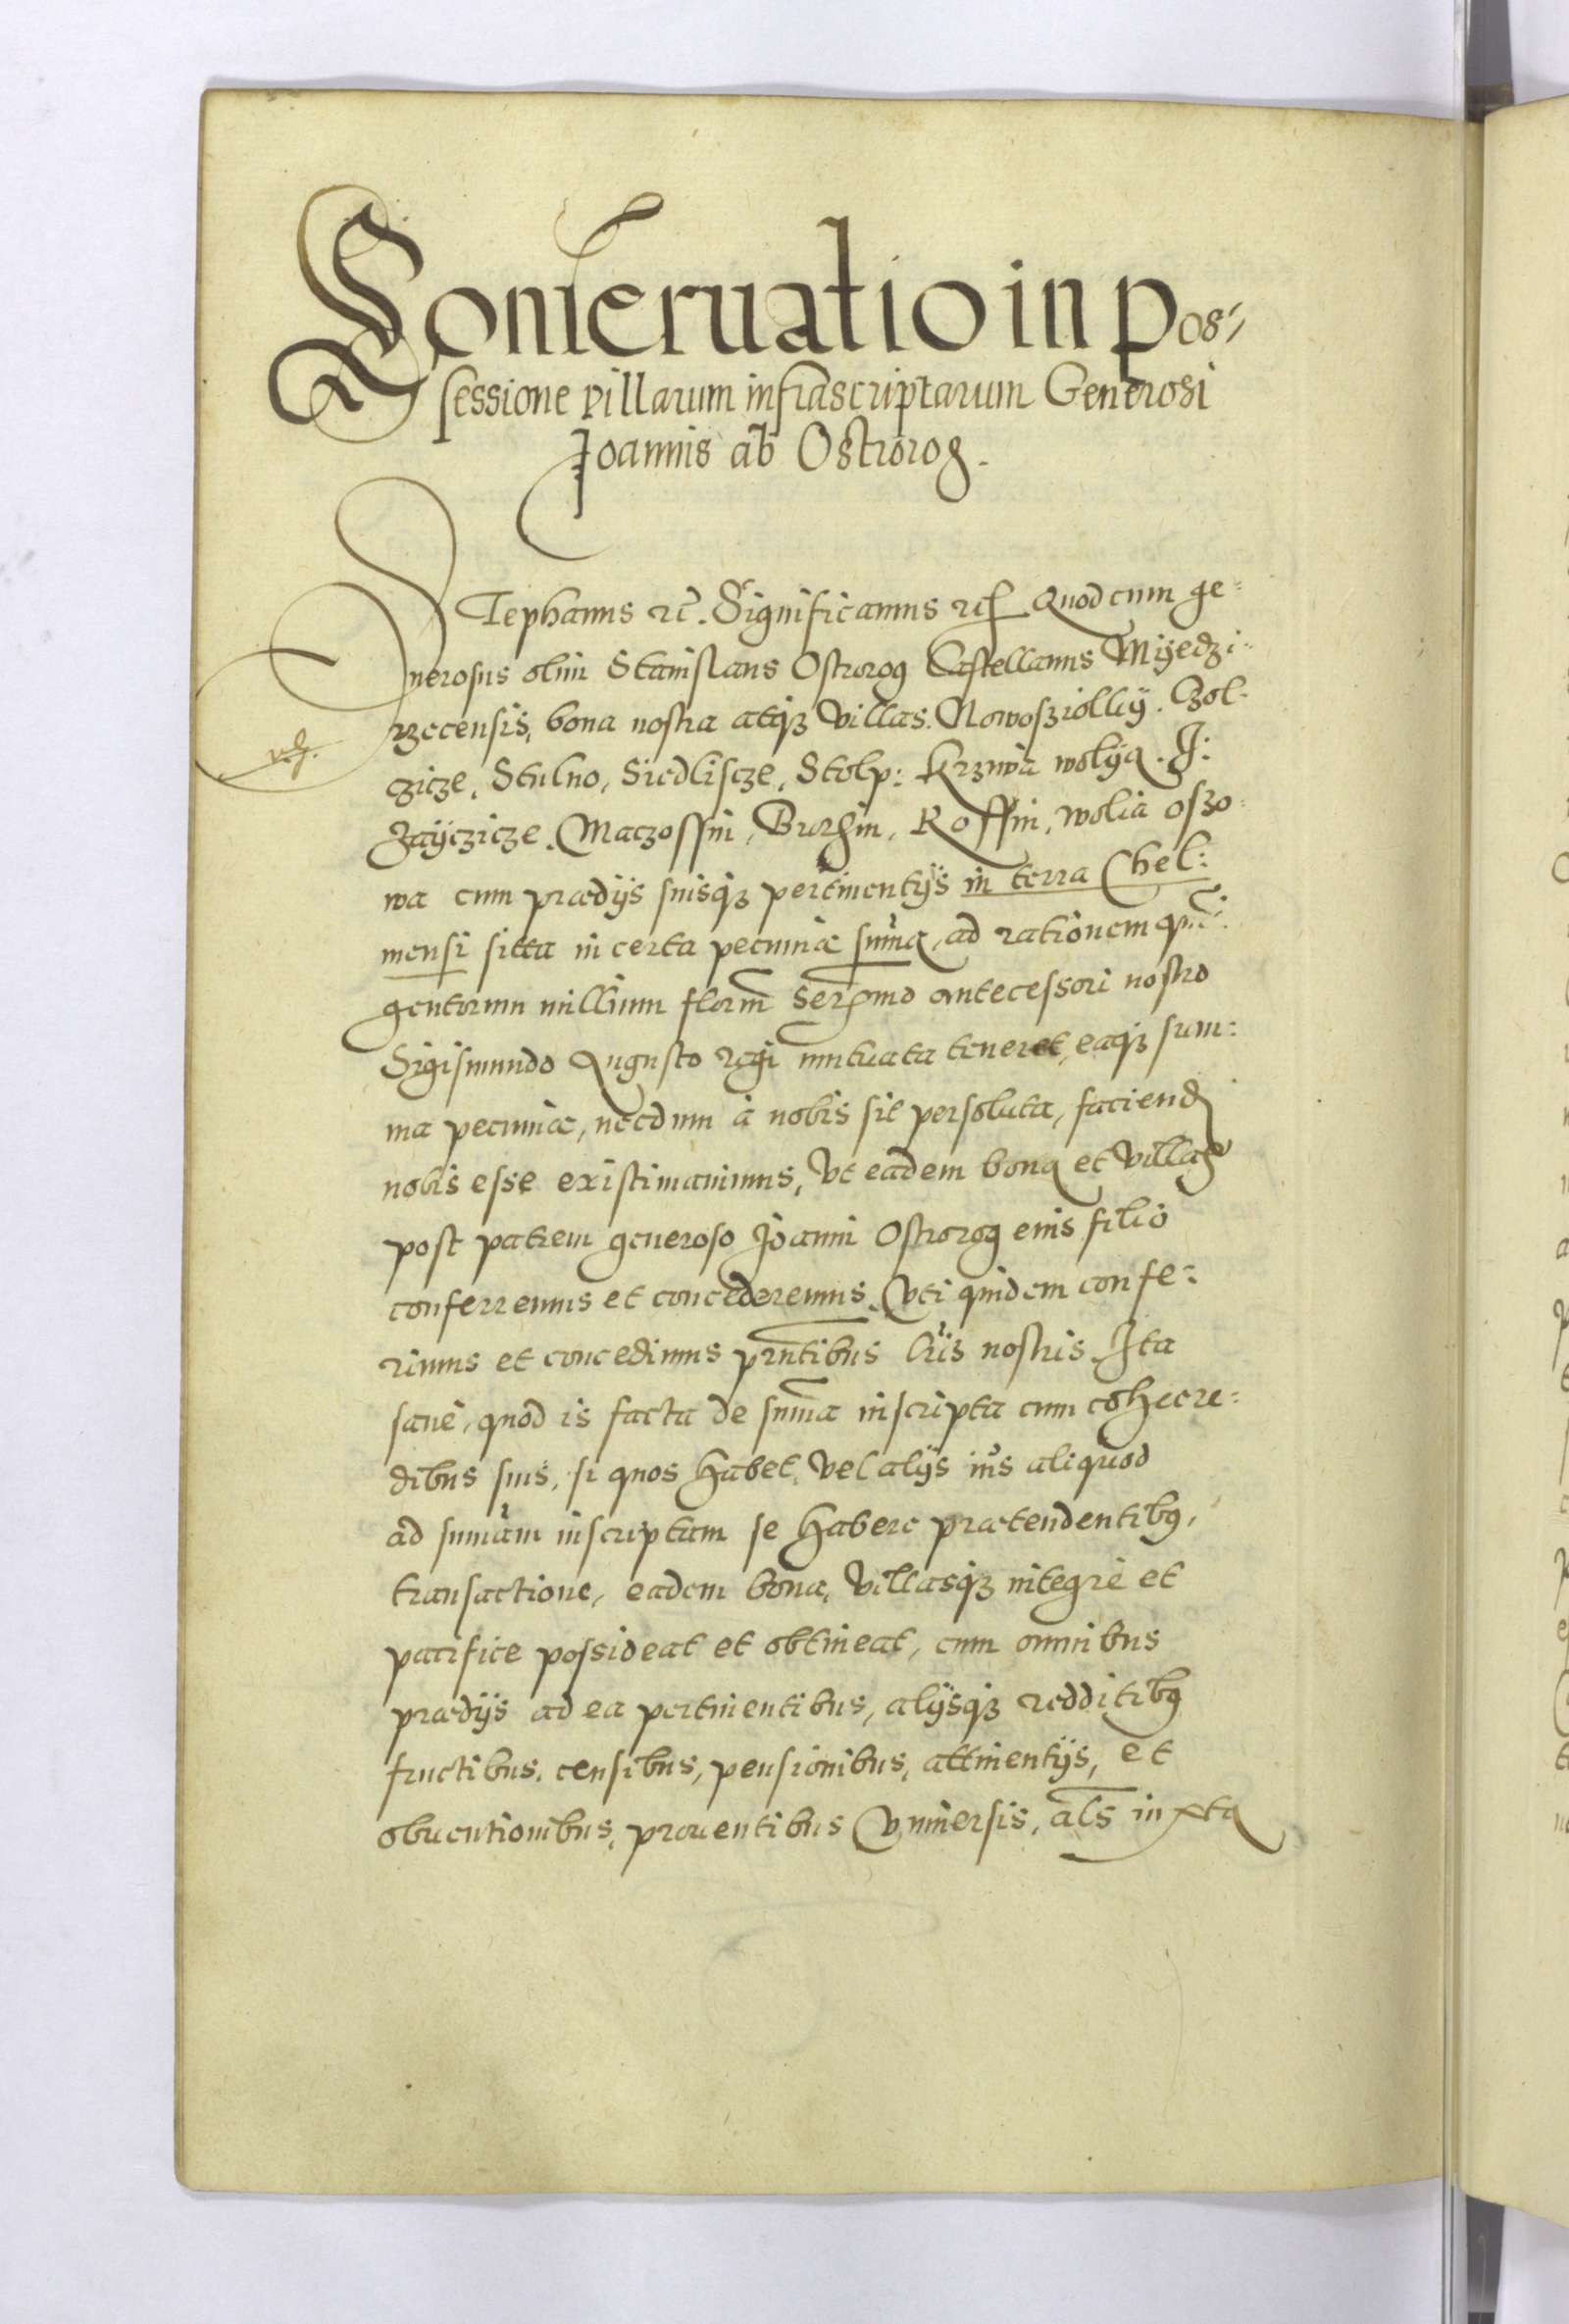 Conseruatio in pos,,
sessione villarum infrascriptarum Generosi
Joannis ab Ostrorog.
STephanus etc. Significamus etc. Quod cum ge:
nerosus olim Stanislaus Ostrorog Castellanus Miyedzi:
rzecensis, bona nostra atq3 villas. Nowosziolky. Czol:
czicze, Stulno, Siedliscze, Stolp: Krzywa wolya. J:
Zayczicze. Maczossin, Burssin, Rossin, wolia oszo:
wa cum prædijs suisq3 pertinentijs in terra Chel:
mensi sitta in certa pecuniæ suma, ad rationem
gentorum millium florm Sermo antecessori nostro
Sigismundo Augusto regi mutuata teneret, eaq3 sum:
ma pecuniæ, necdum à nobis sit persoluta, faciend
nobis esse existimauimus, Vt eadem bona et villas
post patrem generoso Joanni Ostrorog eius filio
conferremus et concederemus. Vti quidem confe:
rimus et concedimus pntibus lris nostris. Ita
sanè, quod is facta de suma inscripta cum cohære:
dibus suis, si quos habet, vel alijs ius aliquod
ad sumam inscriptam se habere prætendentib9,
transactione, eadem bona, villasq3 integrè et
pacifice possideat et obtineat, cum omnibus
prædijs ad ea pertinentibus, alijsq3 redditib9
fructibus, censibus, pensionibus, attinentijs, et
obuentionibus, prouentibus Vniuersis, als iuxta